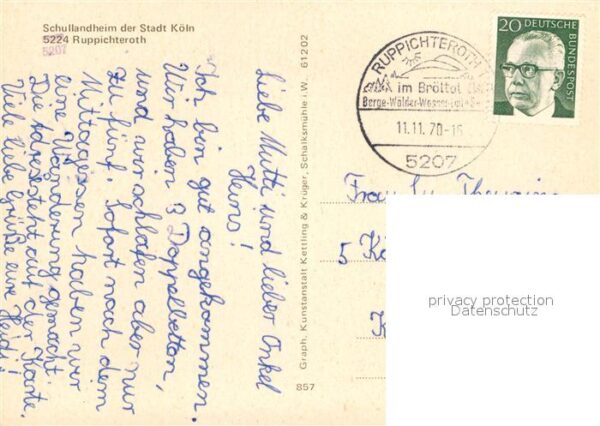 Schullandheim der Stadt Köln
5224 Ruppichteroth
5207
Liebe Mutti und lieber Onkel
Heino!
Ich bin gut angekommen.
Wir haben 3 Doppelbetten,
und wir schlafen aber nur
zu fünf. Sofort nach dem
Mittagessen haben wir
eine Wanderung gemacht.
Die Adresse steht auf der Karte.
Viele liebe Grüße eure Heidi
Graph. Kunstanstalt Kettling & Krüger, Schalksmühle i.W. 61202
857
RUPPICHTEROTH 1
im Bröltal
Berge-Wälder-Wasser
11.11.70-16
5207
20 DEUTSCHE BUNDESPOST
Frau
5 Kö
K
privacy protection
Datenschutz